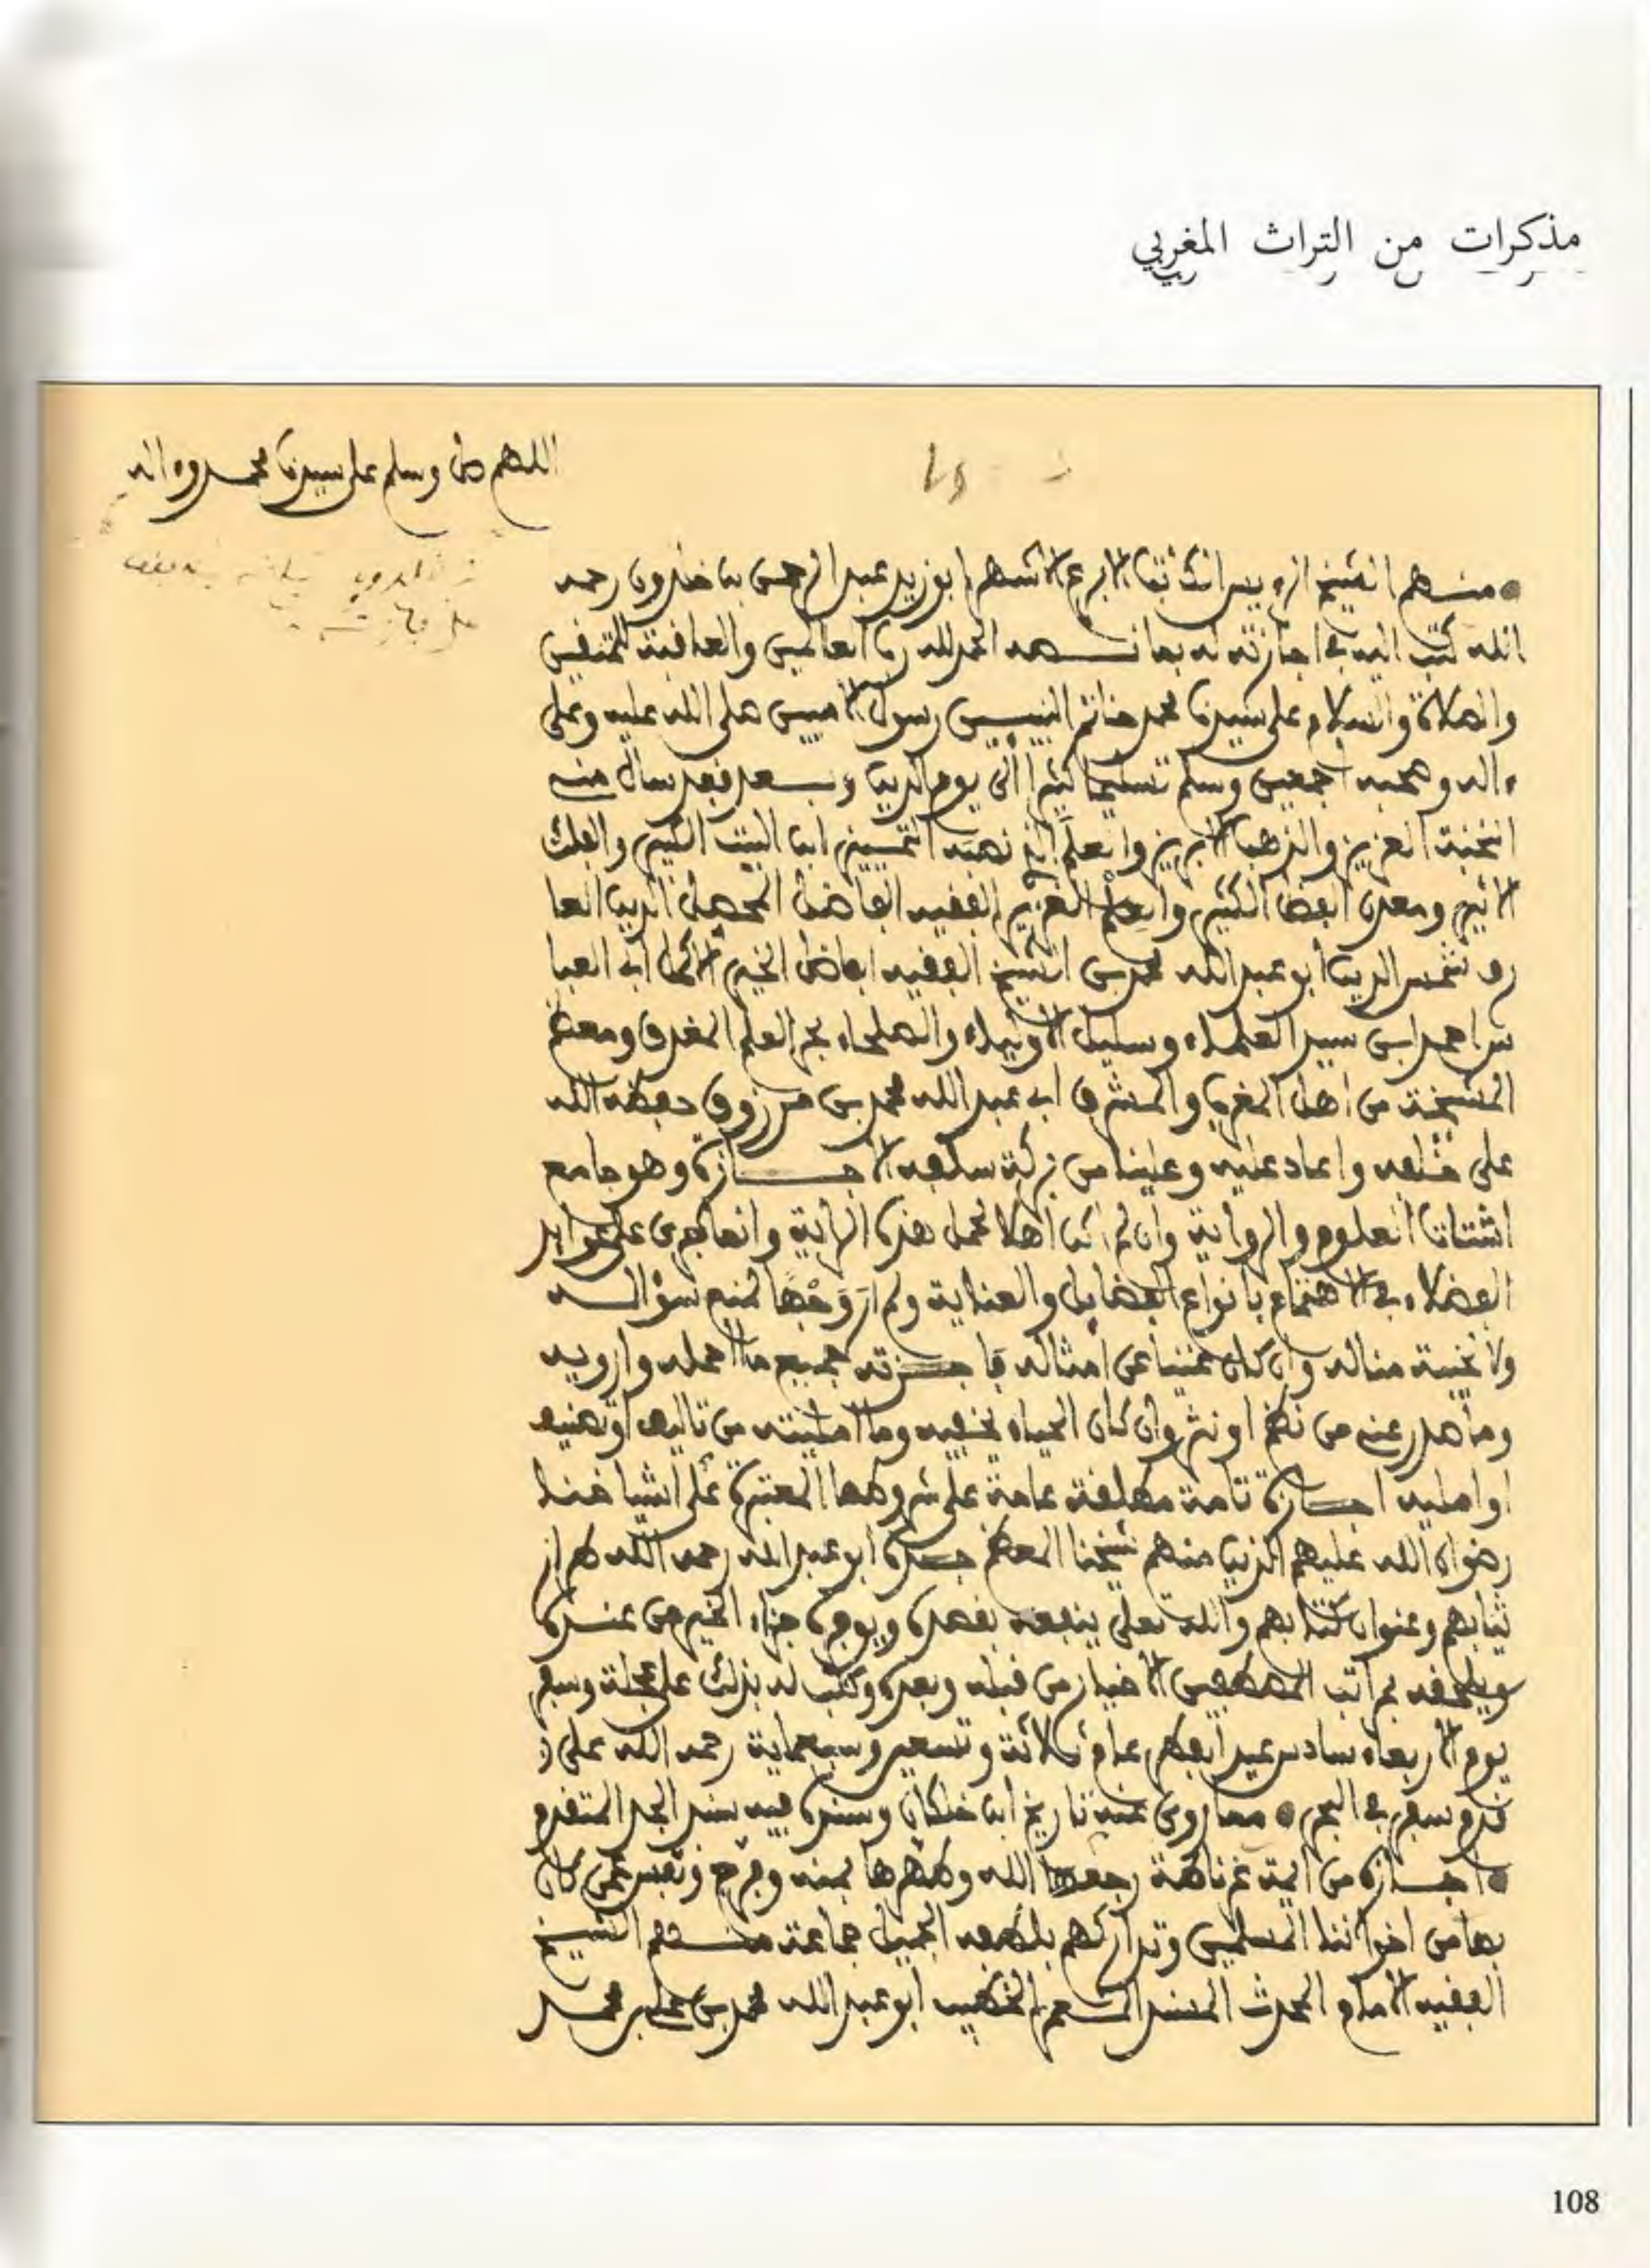 مذكرات من التراث المغربي
اللهم صل وسلم على سيدنا محمد وءاله
منهم الشيخ الرءيس الثقة الابرع الاشهر ابو زيد عبد الرحمن بن خلدون رحمه
الله كتب اليه في اجازته له بما نصه الحمد لله رب العالمين والعاقبة للمتقين
والصلاة والسلام على سيدنا محمد خاتم النبيين رسول الاميين صلى الله عليه وعلى
ءاله وصحبه اجمعين وسلم تسليما كثيرا الى يوم الدين وبعد فقد سال منه
النخبة العزيز والذهب الابريز وا التمييز ابن البيت الكبير والفلك
الاثير ومعدن الفضل الكثير والعلم العزيز الفقيه الفاضل المحصل الدين العا
رف شمس الدين ابو عبد الله محمد بن الشيخ الفقيه الفاضل الخير الاكمل ابي العبا
س احمد ابن سيد العلماء وسليل الاولياء والصلحاء بحر العلم المغرق ومعظم
المشيخة من اهل المغرب والمشرق ابي عبد الله محمد بن مرزوق حفظه الله
على خلقه واعاد عليه وعلينا من بركة سلفه الاجازة وهو جامع
اشتات العلوم والرواية وان لم اكن اهلا لحمل هذه الراية وانما جرى على عوايد
الفضلاء في الاهتمام بانواع الفضايل والعناية ولم ار وجها لمنع سؤاله
ولا غيبة مناله وان كان غنيا عن امثاله فاجزته جميع ما احمله وارويه
وما صدر عني من نظم او نثر وان كان الحياء يخفيه وما امليته من تاليف او تصنيف
او امليه اجازة تامة مطلقة عامة على شروطها المعتبرة على اشياخنا
رضوان الله عليهم الذين منهم شيخنا المعظم جده ابو عبد الله رحمه الله طراز
ثيابهم وعنوان كتابهم والله تعلى ينفعه بقصده ويوفر جزاء الخير من عنده
ويلحقه مراتب المصطفين الاخيار من قبله وبعده وكتب له بذلك على عجلة وسفر
يوم الاربعاء سادس عيد الفطر عام ثلاثة وتسعين وسبعماية رحمه الله على
قدم سفر في البحر مما روى عنه تاريخ ابن خلكان وسنده فيه سند الجد المتقدم
اجازه من ايمة غرناطة رجعها الله وطهرها بمنه وفرج ونفس عمن كان
بها من اخواننا المسلمين وتداركهم بلطفه الجميل جماعة منهم الشيخ
الفقيه الامام المحدث المسند الخطيب ابو عبد الله محمد بن علي بن محمد
108